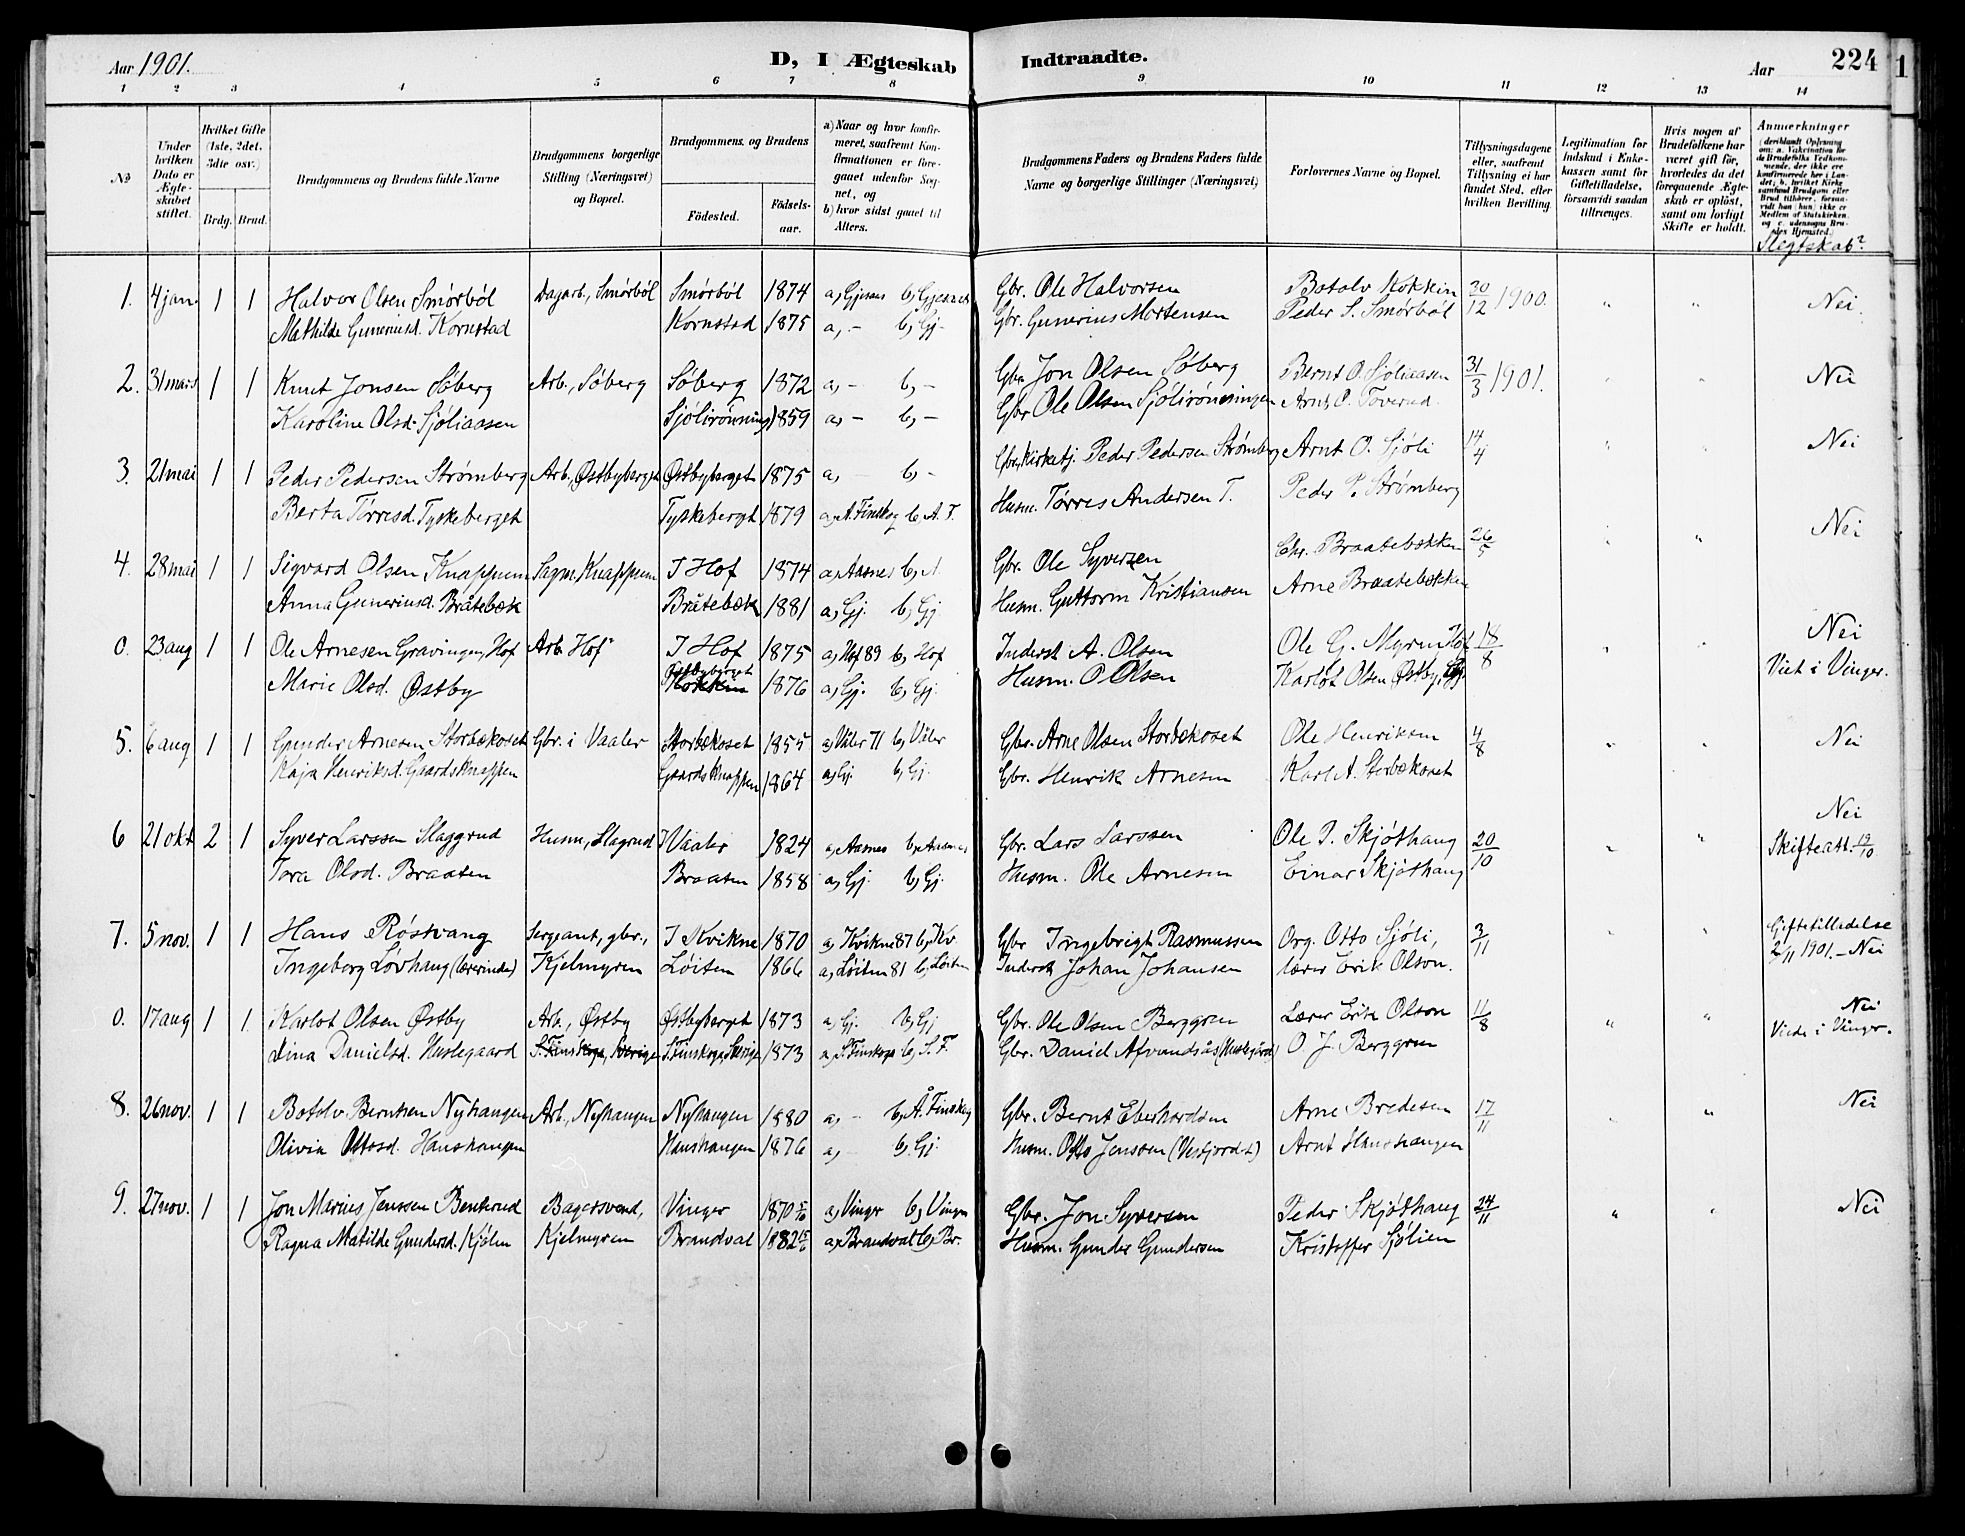 Aar 1901.
D, I Ægteskab Indtraadte.
Aar 224
1 2 3 4 5 6 7 8 9 10 11 12 13 14
№
Under hvilken Dato er Ægteskabet stiftet.
Hvilket Gifte (1ste, 2det, 3die osv.)
Brdg. Brud.
Brudgommens og Brudens fulde Navne
Brudgommens borgerlige Stilling (Næringsvei) og Bopæl.
Brudgommens og Brudens
Fødested.
Fødselsaar.
a) Naar og hvor konfirmeret, saafremt Konfirmationen er foregaaet udenfor Sognet, og
b) hvor sidst gaaet til Alters.
Brudgommens Faders og Brudens Faders fulde Navne og borgerlige Stillinger (Næringsvei)
Forlovernes Navne og Bopæl.
Tillysningsdagene eller, saafremt Tillysning ei har fundet Sted, efter hvilken Bevilling.
Legitimation for Indskud i Enkekassen samt for Giftetilladelse, forsaavidt saadan tiltrænges.
Hvis nogen af Brudefolkene har været gift før, hvorledes da det foregaaende Ægteskab er opløst, samt om lovligt Skifte er holdt.
Anmerkninger (deriblandt Oplysning om: a. Vakcination for de Brudefolks Vedkommende, der ikke ere konfirmerede her i Landet; b. hvilket Kirkesamfund Brudgom eller Brud tilhører, forsaavidt han (hun) ikke er Medlem af Statskirken, og c. udensogns Brudes Hjemsted.)
Slegtskab?
1. 4 jan 1 1 Halvor Olsen Smörböl Dagarb., Smörböl Smörböl 1874 a, Gjesaas b, Gjesaas Gbr. Ole Halvorsen Botolv Kökkin 30/12 1900. " " Nei
Mathilde Guneriusd. Kornstad Kornstad 1875 a, - b, Gj- Gbr. Gunerius Mortensen Peder S. Smörböl
2. 31 mars 1 1 Knut Jonsen Söberg Arb., Söberg Söberg 1872 a, - b, - Gbr Jon Olsen Söberg Bernt O. Sjöliaasen 31/3 1901. " " Nei
Karoline Olsd. Sjöliaasen Sjölirönning 1859 a, - b, - Gbr Ole Olsen Sjölirönningen Arnt O. Toverud.
3. 21 mai 1 1 Peder Pedersen Strømberg Arb., Østbyberget Østbyberget 1875 a, b, - Gbr, Kirketj. Peder Pedersen Strømberg Arnt O. Sjöli 14/4 " " Nei
Berta Törresd. Tyskeberget Tyskebergt 1879 a, A. Finskog b, A. F. Husm. Törres Andersen T. Peder P. Strömberg
4. 28 mai 1 1 Sigvard Olsen Knappen Sagm, Knappen I Hof 1874 a, Aasnes b, A. Gbr. Ole Syversen Chr. Braatebækken 26/5 " " Nei
Anna Guneriusd. Bråtebæk Bråtebæk 1881 a, Gj. b, Gj. Husm. Guttorm Kristiansen Arne Braatebækken
0. 23 aug 1 1 Ole Arnesen Gravingen, Hof Arb. Hof I Hof 1875 a, Hof 89 b, Hof Inderst A. Olsen Ole G. Myrm Hof 18/8 " " Nei
Marie Olsd. Østby Østbyberget Kökkin 1876 a, Gj. b, Gj. Husm. O Olsen Karlot Olsen Østby, Gj. Viet i Vinger.
5. 6 aug 1 1 Gunder Arnesen Storbækoset Gbr. i Vaaler Storbækoset 1855 a, Våler 71 b, Våler Gbr. Arne Olsen Storbækoset Ole Henriksen 4/8 " " Nei
Kaja Henriksd. Gaardsknappen Gaardsknappen 1864 a, Gj. b, Gj. Gbr. Henrik Arnesen Karl A. Storbækoset
6 21 okt 2 1 Syver Larssen Slaggrud Husm, Slagrud I Vaaler 1824 a, Aasnes b, Aasnes Gbr. Lars Larssen Ole P. Skjöthaug 20/10 " " Nei
Tora Olsd. Braaten Braaten 1858 a, Gj. b, Gj. Husm. Ole Arnesen Einar Skjöthaug Skifteatt. 19/10
7. 5 nov. 1 1 Hans Röstvang Sergeant, gbr., I Kvikne 1870 a, Kvikne 87 b, Kv. Gbr Ingebrigt Rasmussen Org. Otto Sjöli, 3/11 " " Giftetilladelse
Ingeborg Lövhaug (lærerinde) Kjelmyren Löiten 1866 a, Löiten 81 b, Löiten Inderst Johan Johansen lærer Erik Olson. 2/11 1901. - Nei
0. 17 aug 1 1 Karlot Olsen Østby Arb., Østby Østbyberget 1873 a, Gj. b, Gj Gbr. Ole Olsen Berggren Lærer Erik Olson 11/8 " " Nei
Lina Danielsd. Huslegaard S. Finskoga, Sverige S. Finskoga, Sverige 1873 a, S. Finskoga b, S. F. Gbr. Daniel Afvundsås (Huslegård) O. J. Berggren Viede i Vinger.
8. 26 nov. 1 1 Botolv Berntsen Nyhaugen Arb., Nyhaugen Nyhaugen 1880 a, - b, Å. Finskog Gbr. Bernt Eberhardsen Arne Bredesen 17/11 " " Nei
Olivia Ottosd. Hanshaugen Hanshaugen 1876 a, - b, Gj. Husm. Otto Jenssen Arnt Hanshaugen
9. 27 nov. 1 1 Jon Marius Jenssen Benterud Bagersvend, Vinger 1870 a, Vinger b, Vinger Gbr. Jon Syversen Peder Skjöthaug 24/11 " " Nei
Ragna Matilde Gundersd. Kjölen Kjelmyren Brandval 1882 a, Brandval b, Br. Husm. Gunder Gundersen Kristoffer Sjölien